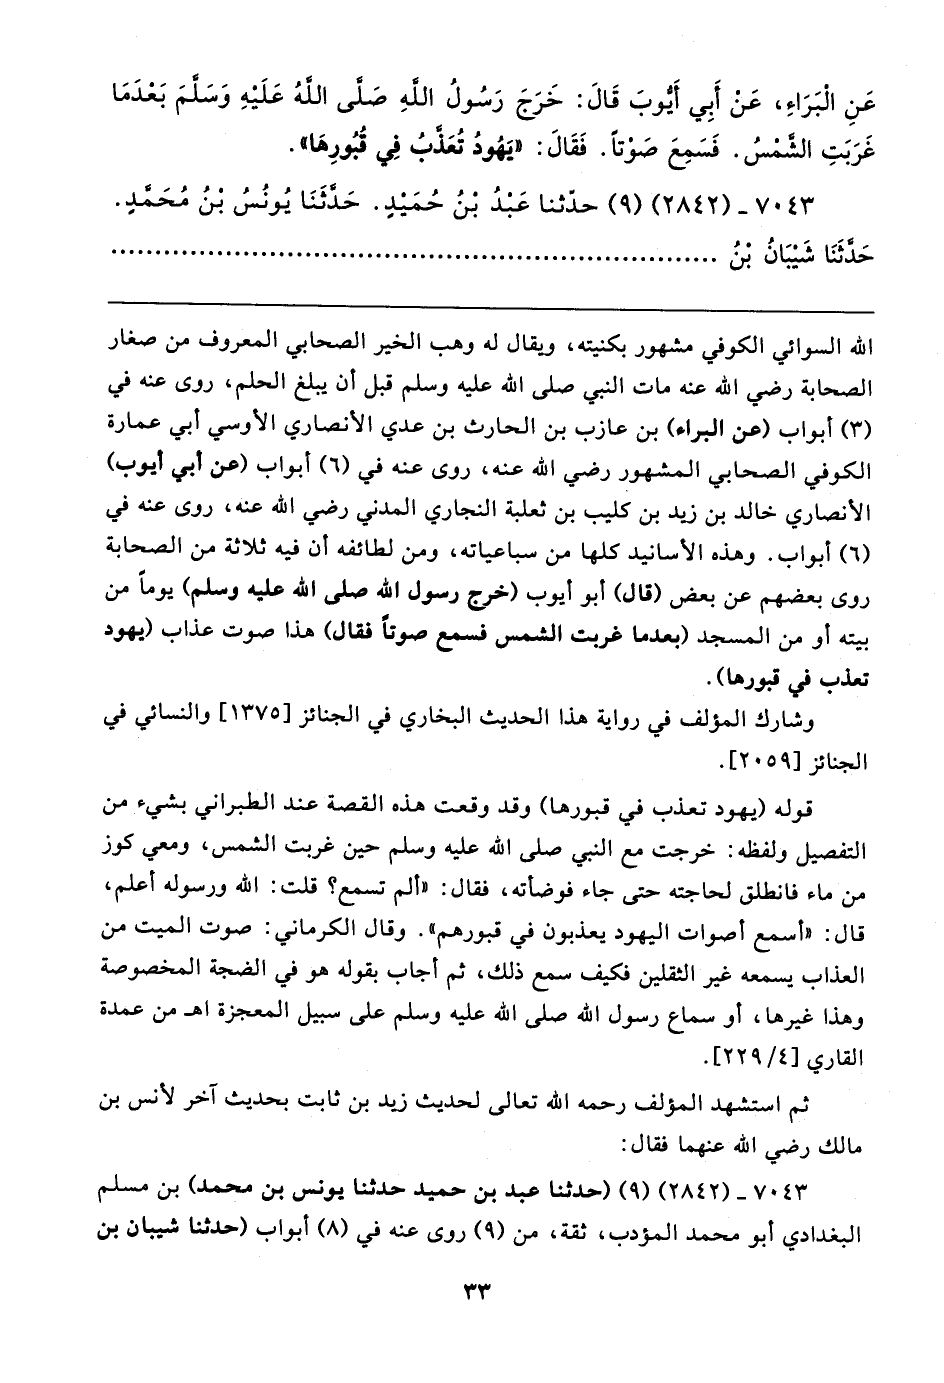 عَنِ الْبَرَاءِ، عَنْ أَبِي أَيُّوبَ قَالَ: خَرَجَ رَسُولُ اللَّهِ صَلَّى اللَّهُ عَلَيْهِ وَسَلَّمَ بَعْدَمَا
غَرَبَتِ الشَّمْسُ. فَسَمِعَ صَوْتاً. فَقَالَ: «يَهُودُ تُعَذَّبُ فِي قُبُورِهَا».
٧٠٤٣ - (٢٨٤٢) (٩) حدّثنا عَبْدُ بْنُ حُمَيْدٍ. حَدَّثَنَا يُونُسُ بْنُ مُحَمَّدٍ.
حَدَّثَنَا شَيْبَانُ بْنُ ................................................................
الله السوائي الكوفي مشهور بكنيته، ويقال له وهب الخير الصحابي المعروف من صغار
الصحابة رضي الله عنه مات النبي صلى الله عليه وسلم قبل أن يبلغ الحلم، روى عنه في
(٣) أبواب (عن البراء) بن عازب بن الحارث بن عدي الأنصاري الأوسي أبي عمارة
الكوفي الصحابي المشهور رضي الله عنه، روى عنه في (٦) أبواب (عن أبي أيوب)
الأنصاري خالد بن زيد بن كليب بن ثعلبة النجاري المدني رضي الله عنه، روى عنه في
(٦) أبواب. وهذه الأسانيد كلها من سباعياته، ومن لطائفه أن فيه ثلاثة من الصحابة
روى بعضهم عن بعض (قال) أبو أيوب (خرج رسول الله صلى الله عليه وسلم) يوماً من
بيته أو من المسجد (بعدما غربت الشمس فسمع صوتاً فقال) هذا صوت عذاب (يهود
تعذب في قبورها).
وشارك المؤلف في رواية هذا الحديث البخاري في الجنائز [١٣٧٥] والنسائي في
الجنائز [٢٠٥٩].
قوله (يهود تعذب في قبورها) وقد وقعت هذه القصة عند الطبراني بشيء من
التفصيل ولفظه: خرجت مع النبي صلى الله عليه وسلم حين غربت الشمس، ومعي كوز
من ماء فانطلق لحاجته حتى جاء فوضأته، فقال: «ألم تسمع؟ قلت: الله ورسوله أعلم،
قال: «أسمع أصوات اليهود يعذبون في قبورهم». وقال الكرماني: صوت الميت من
العذاب يسمعه غير الثقلين فكيف سمع ذلك، ثم أجاب بقوله هو في الضجة المخصوصة
وهذا غيرها، أو سماع رسول الله صلى الله عليه وسلم على سبيل المعجزة اهـ من عمدة
القاري [٤/ ٢٢٩].
ثم استشهد المؤلف رحمه الله تعالى لحديث زيد بن ثابت بحديث آخر لأنس بن
مالك رضي الله عنهما فقال:
٧٠٤٣ - (٢٨٤٢) (٩) (حدثنا عبد بن حميد حدثنا يونس بن محمد) بن مسلم
البغدادي أبو محمد المؤدب، ثقة، من (٩) روى عنه في (٨) أبواب (حدثنا شيبان بن
٣٣